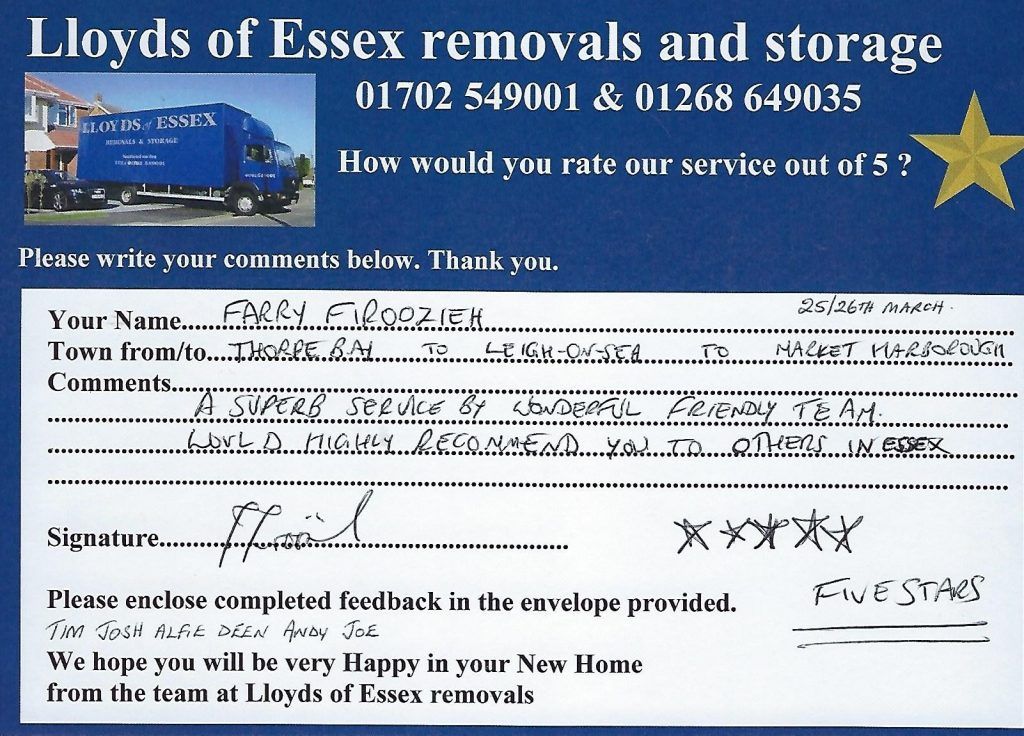 Lloyds of Essex removals and storage
01702 549001 & 01268 649035
LLOYDS of ESSEX
REMOVALS & STORAGE
How would you rate our service out of 5 ?
Please write your comments below. Thank you.
25/26TH MARCH.
Your Name.....FARRY FIROOZIEH
Town from/to...THORPE BAY TO LEIGH-ON-SEA TO MARKET HARBOROUGH
Comments.....
A SUPERB SERVICE BY WONDERFUL FRIENDLY TEAM.
WOULD HIGHLY RECOMMEND YOU TO OTHERS IN ESSEX
Signature.....
FIVE STARS
Please enclose completed feedback in the envelope provided.
TIM JOSH ALFIE DEEN ANDY JOE
We hope you will be very Happy in your New Home
from the team at Lloyds of Essex removals